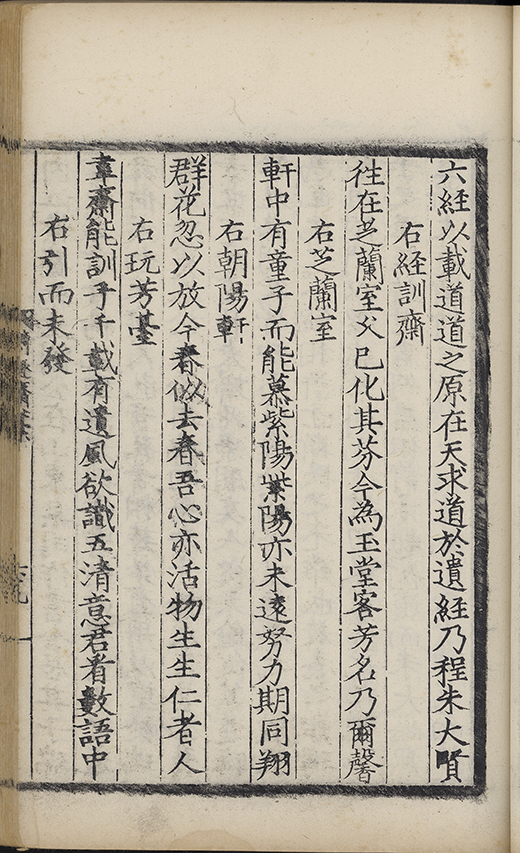 六經以載道道之原在天求道於遺經乃程朱大賢
右經訓齋
往在芝蘭室久已化其芬今為玉堂客芳名乃爾馨
右芝蘭室
軒中有童子而能慕紫陽紫陽亦未遠努力期同翔
右朝陽軒
群花忽以放今春似去春吾心亦活物生生仁者人
右玩芳臺
韋齋能訓子千載有遺風欲識五清意君看數語中
右引而未發